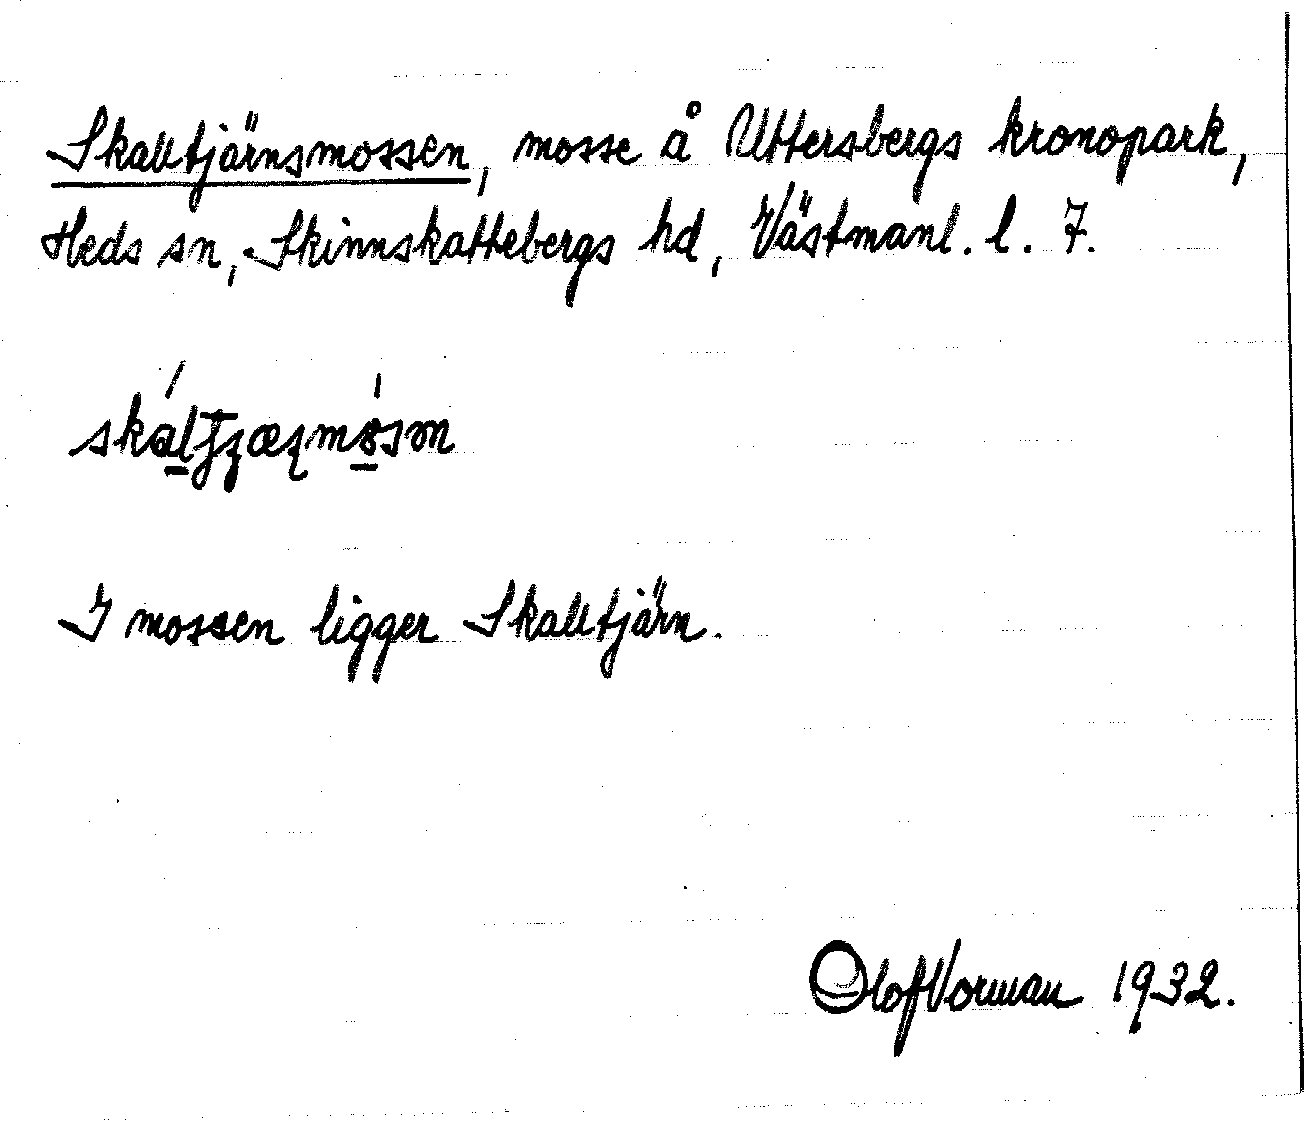 Skalltjärnsmossen, mosse å Uttersbergs kronopark,
Heds sn, Skinnskattebergs hd, Västmanl. l. 7.
I mossen ligger Skalltjärn.
Olof Vorman 1932.